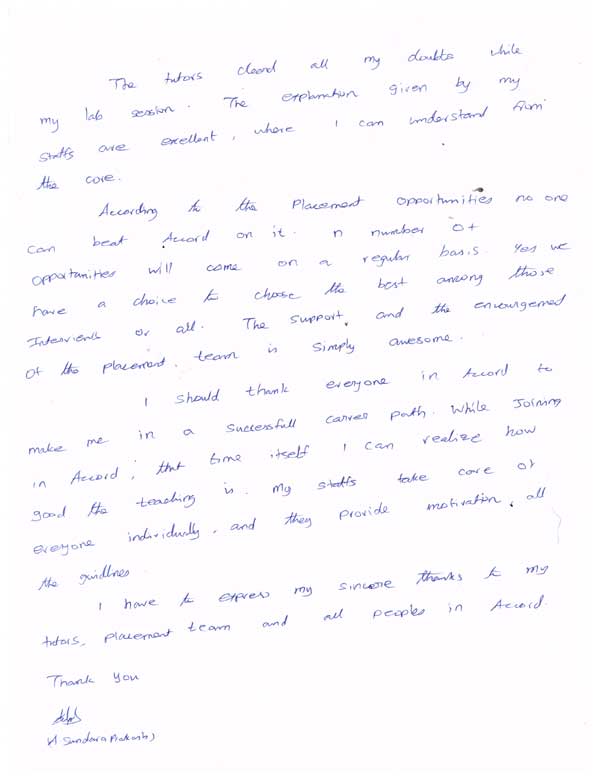 The tutors cleard all my doubts while
my lab session. The explanation given by my
staffs are excellent, where I can understand from
the core.
According to the Placement opportunities no one
can beat Accord on it. n number of
opportunities will come on a regular basis. Yes we
have a choice to choose the best among those
Interviews or all. The support, and the encouragemed
of the placement team is simply awesome.
I should thank everyone in Accord to
make me in a successfull career path. While Joining
in Accord, that time itself I can realize how
good the teaching is. my staffs take care of
everyone individually, and they provide motivation, all
the guidlines
I have to express my sincere thanks to my
tutors, placement team and all peoples in Accord.
Thank you
Sundara Prakash)